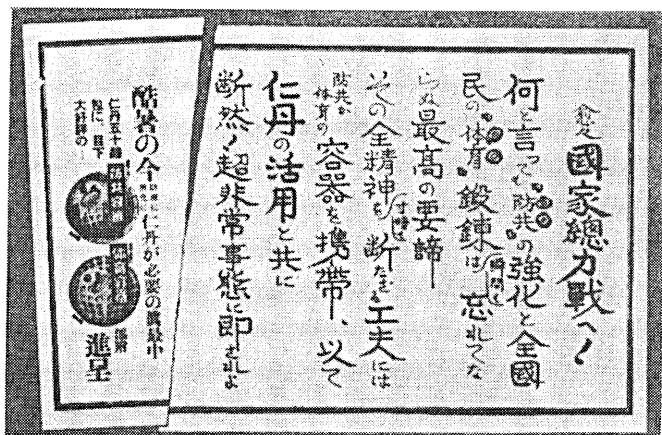 愈々國家總力戰へ!
何と言っても“防共”の強化と全國
民の“体育”鍛錬は瞬間も忘れてな
らぬ最高の要諦―
その全精神を寸時も断たぬ工夫には
防共か体育の容器を携帯し、以て
仁丹の活用と共に
断然!超非常事態に即されよ
酷暑の今
仁丹が必要の眞最中
仁丹五十錢
粒に、目下
大好評の
防共容器
体育容器
進呈